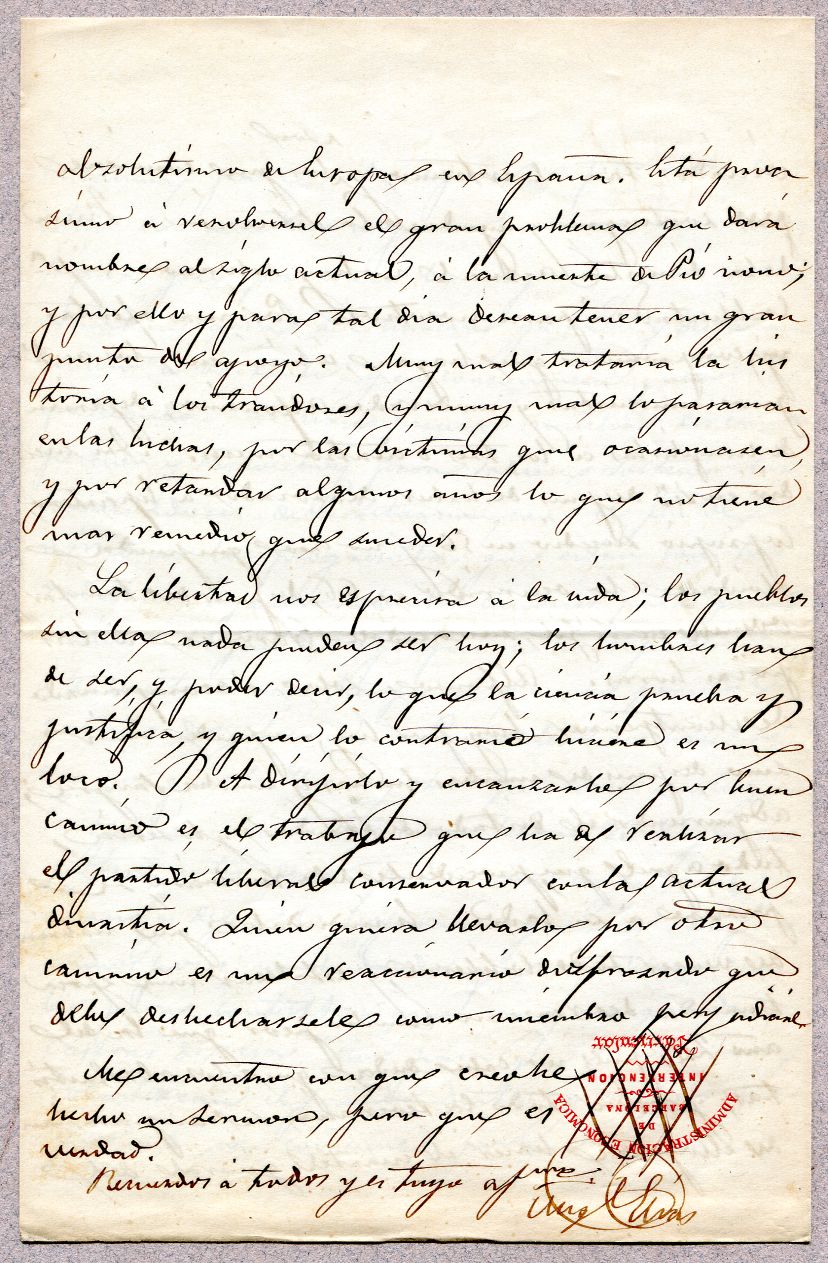 absolutismo de Europa en España. Está proc
simo á resolverse el gran problema que dará
nombre al siglo actual, á la muerte de Pio nono;
y por ello y para tal dia desean tener un gran
punto de apoyo. Muy mal trataria la his
toria á los traidores, y muy mal lo pasarian
en las luchas, por las victimas que ocasionasen,
y por retardar algunos años lo que no tiene
mas remedio que suceder.
La libertad nos es precisa á la vida; los pueblos
sin ella nada pueden ser hoy; los hombres han
de ser, y poder decir, lo que la ciencia prueba y
justifica, y quien lo contrario hiciere es un
loco. A dirijirlo y encauzarlo por buen
camino es el trabajo que ha de realizar
el partido liberal conservador con la actual
dinastia. Quien quiera llevarlo por otro
camino es un reaccionario disfrazado que
debe desecharsele como miembro perjudicial.
Me encuentro con que creo he
hecho un sermon, pero que es
verdad.
Recuerdos á todos y es tuyo afmo.
ADMINISTRACION ECONOMICA
DE
BARCELONA
INTERVENCION
Particular